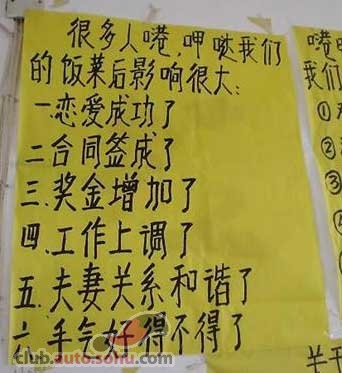 很多人嗯,呷哒我们
的饭菜后影响很大:
一恋爱成功了
二合同签成了
三.奖金增加了
四.工作上调了
五.夫妻关系和谐了
六手气好得不得了
我们
①
②
③
④
club.auto.sohu.com